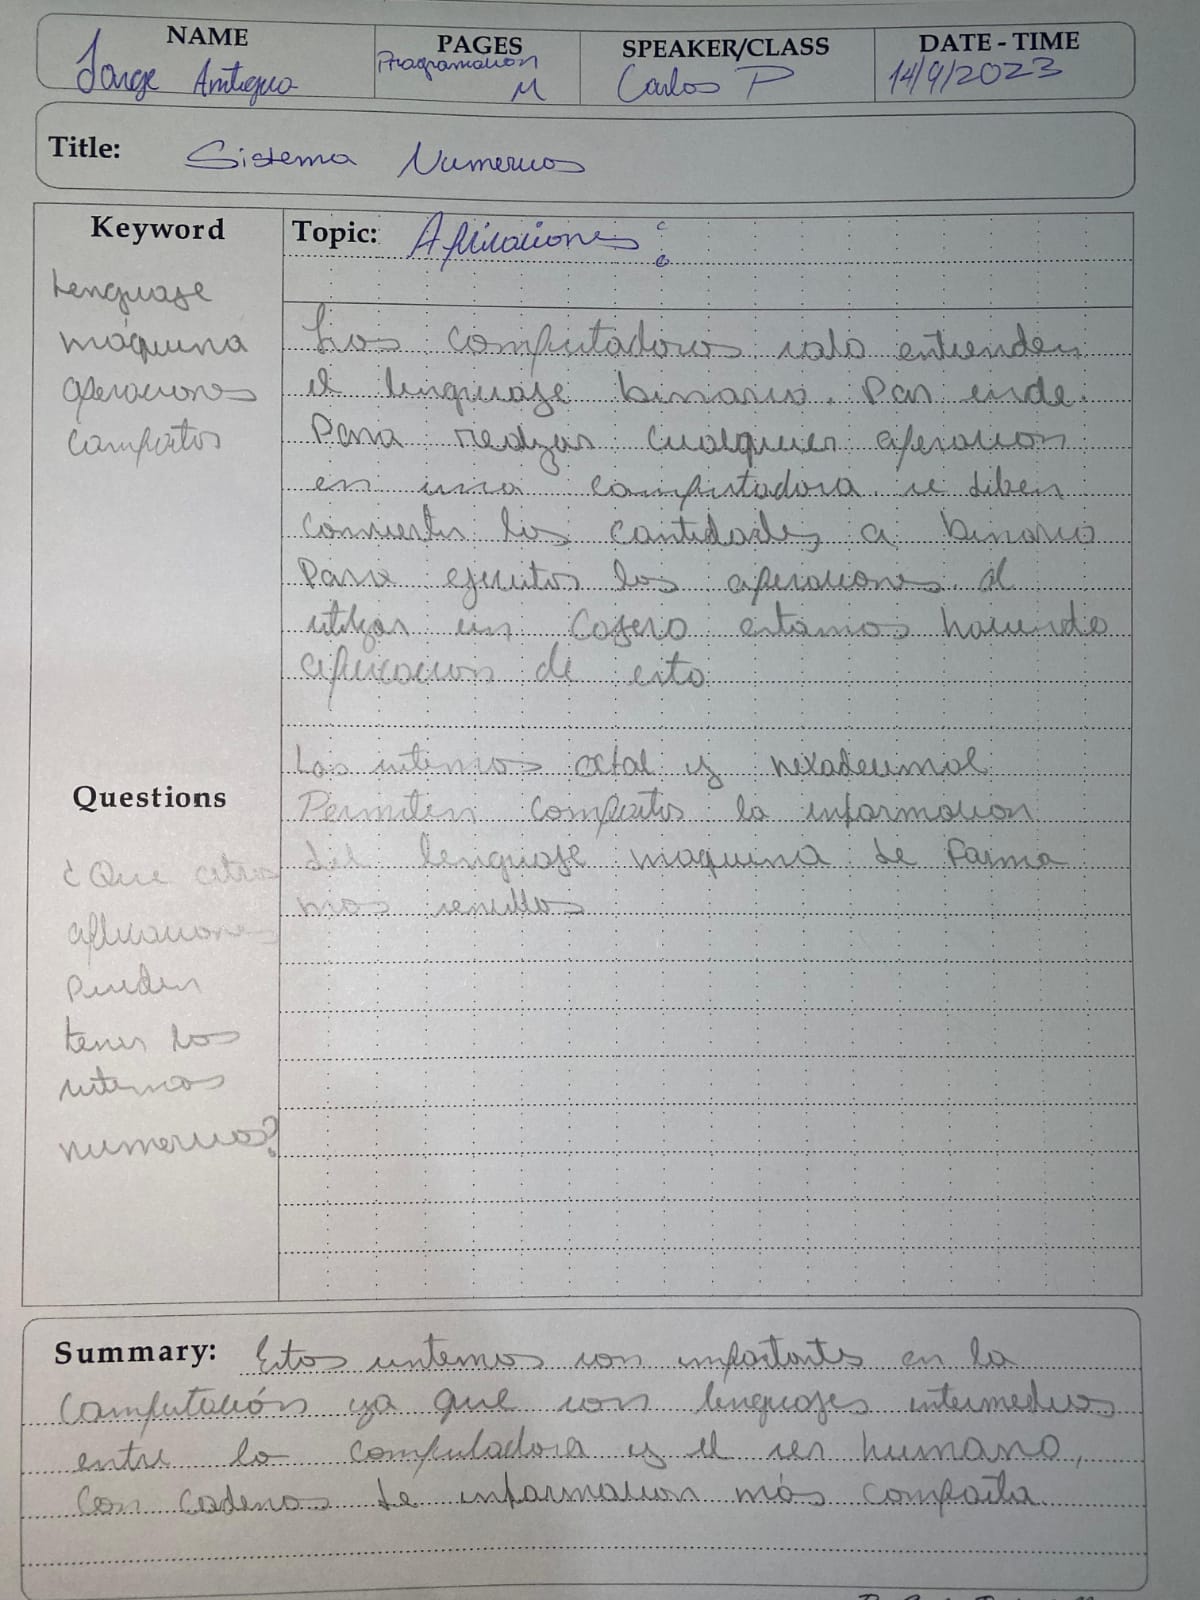 NAME
Jorge Antigua
PAGES
Programación
M
SPEAKER/CLASS
Carlos P
DATE - TIME
14/9/2023
Title: Sistema Numericos
Keyword
Lenguaje
máquina
operaciones
compartos
Topic: Aplicaciones:
Las computadoras solo entienden
el lenguaje binario. Por ende
Para realizar cualquier operacion
en una computadora se deben
convertir las cantidades a binario
Para ejecutar las operaciones. al
utilizar un Cajero estamos haciendo
aplicacion de esto
Los sistemas octal y hexadecimal
Permiten compartir la informacion
del lenguaje maquina de Forma
mas sencillas
Questions
¿Que otras
aplicaciones
pueden
tener los
sistemas
numericos?
Summary: Estos sistemas son importantes en la
Computación ya que son lenguajes intermedios
entre la computadora y el ser humano,
Con cadenas de informacion más compacta.